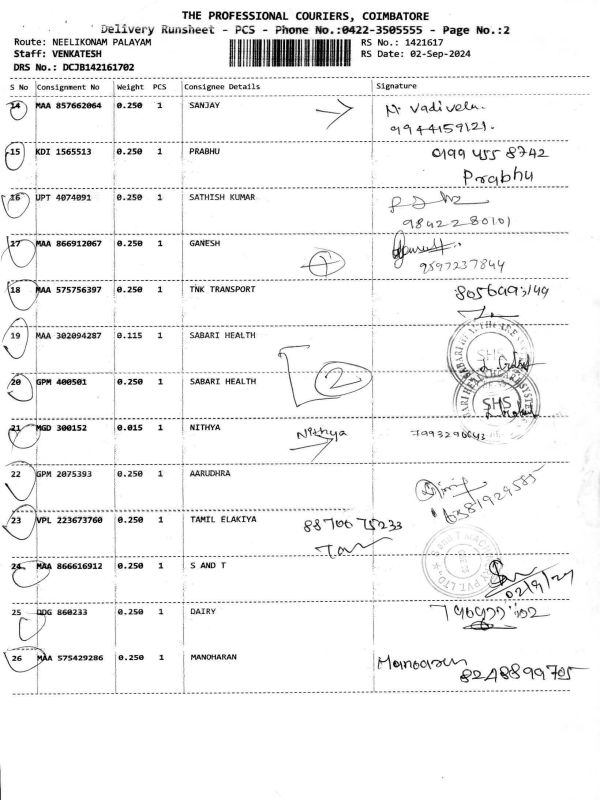 THE PROFESSIONAL COURIERS, COIMBATORE
Delivery Runsheet - PCS - Phone No.:0422-3505555 - Page No.:2
Route: NEELIKONAM PALAYAM
RS No.: 1421617
Staff: VENKATESH
RS Date: 02-Sep-2024
DRS No.: DCJB142161702
S No Consignment No Weight PCS Consignee Details Signature
14 MAA 857662064 0.250 1 SANJAY N. Vadivela.
9944159121.
15 KDI 1565513 0.250 1 PRABHU 8742
Prabhu
16 UPT 4074091 0.250 1 SATHISH KUMAR
9842280101
MAA 866912067 0.250 1 GANESH
1 9597237844
18 MAA 575756397 0.250 1 TNK TRANSPORT
19 MAA 302094287 0.115 1 SABARI HEALTH
SHS
20 GPM 400501 0.250 1 SABARI HEALTH 2
SHS
21 MGD 300152 0.015 1 NITHYA Nithya
22 GPM 2075393 0.250 1 AARUDHRA
23 VPL 223673760 0.250 1 TAMIL ELAKIYA 8870075233
24 MAA 866616912 0.250 1 S AND T
02/9/24
25 DDG 860233 0.250 1 DAIRY
26 MAA 575429286 0.250 1 MANOHARAN
8248899705